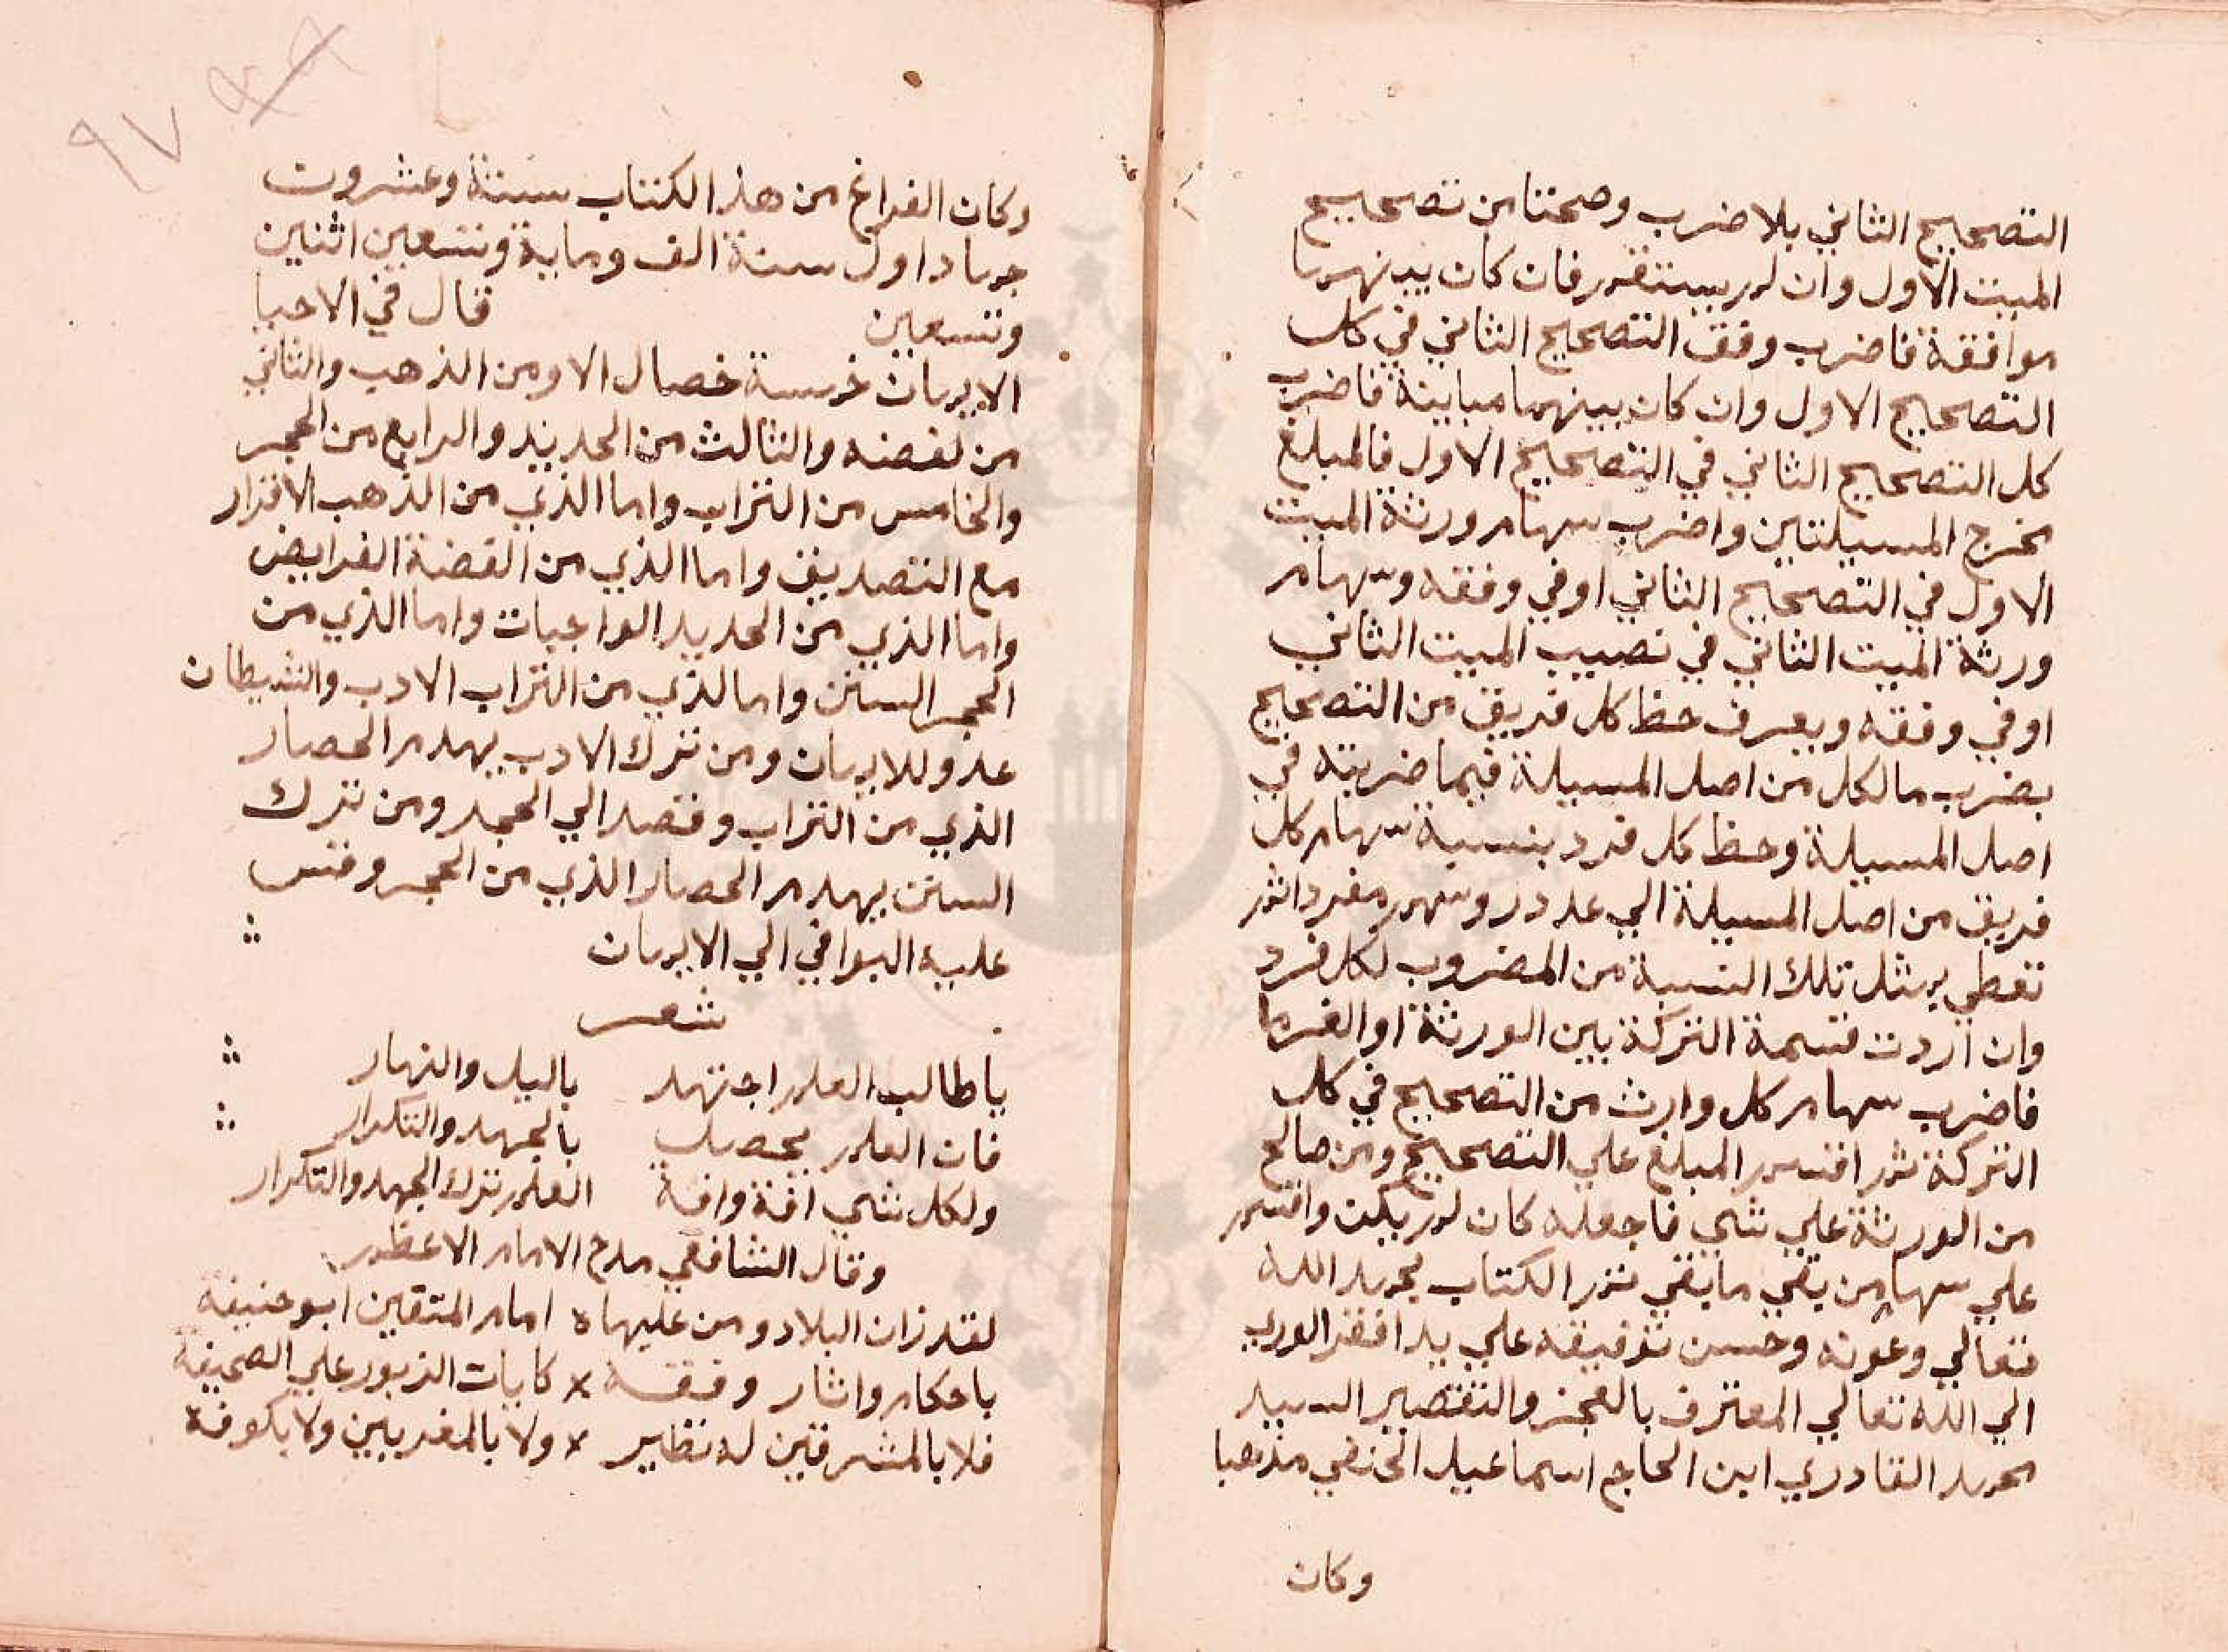 التصحيح الثاني بلا ضرب وصحتا من تصحيح
الميت الاول وان لم يستقم فان كان بينهما
موافقة فاضرب وفق التصحيح الثاني في كل
التصحيح الاول وان كان بينهما مباينة فاضرب
كل التصحيح الثاني في التصحيح الاول فالمبلغ
مخرج المسيلتين واضرب سهام ورثة الميت
الاول في التصحيح الثاني اوفي وفقه وسهام
ورثة الميت الثاني في نصيب الميت الثاني
اوفي وفقه ويعرف حظ كل فريق من التصحيح
بضرب ما لكل من اصل المسيلة فيما ضربته في
اصل المسيلة وحظ كل فرد بنسبة سهام كل
فريق من اصل المسيلة الي عدد روسهم مفردا ثم
تعطي بمثل تلك النسبة من المضروب لكل فرد
وان اردت قسمة التركة بين الورثة او الغرما
فاضرب سهام كل وارث من التصحيح في كل
التركة ثم اقسم المبلغ علي التصحيح ومن صالح
من الورثة علي شي فاجعله كان لم يكن واقسم
علي سهام من بقي ما بقي تم الكتاب بحمد الله
تعالي وعونه وحسن توفيقه علي يد افقر الوري
الي الله تعالي المعترف بالعجز والتقصير السيد
محمد القادري ابن الحاج اسماعيل الحنفي مذهبا
وكان
٩٧
وكان الفراغ من هذا الكتاب ستة وعشروت
جماد اول سنة الف وماية وتسعين اثنين
وتسعين قال في الاحيا
الايمان خمسة خصال الاومن الذهب والثاني
من لفضه والثالث من الحديد والرابع من الحجر
والخامس من التراب واما الذي من الذهب الاقرار
مع التصديق واما الذي من الفضة الفرايض
واما الذي من الحديد الواجبات واما الذي من
الحجر السنن واما لذي من التراب الادب والشيطان
عدو للايمان ومن ترك الادب يهدم الحصار
الذي من التراب وقصد الي الحجر ومن ترك
السنن يهدم الحصار الذي من الحجر وقس
عليه البواقي الي الايمان
شعر
يا طالب العلم اجتهد باليل والنهار
فان العلم يحصل بالجهد والتكرار
ولكل شي افة وافة العلم ترك الجهد والتكرار
وقال الشافعي مدح الامام الاعظم
لقد زان البلاد ومن عليها ه امام المتقين ابو حنيفه
باحكام واثار وفقه × كايات الزبور علي الصحيفة
فلا بالمشرقين له نظير × ولا بالمغربين ولا بكوفة